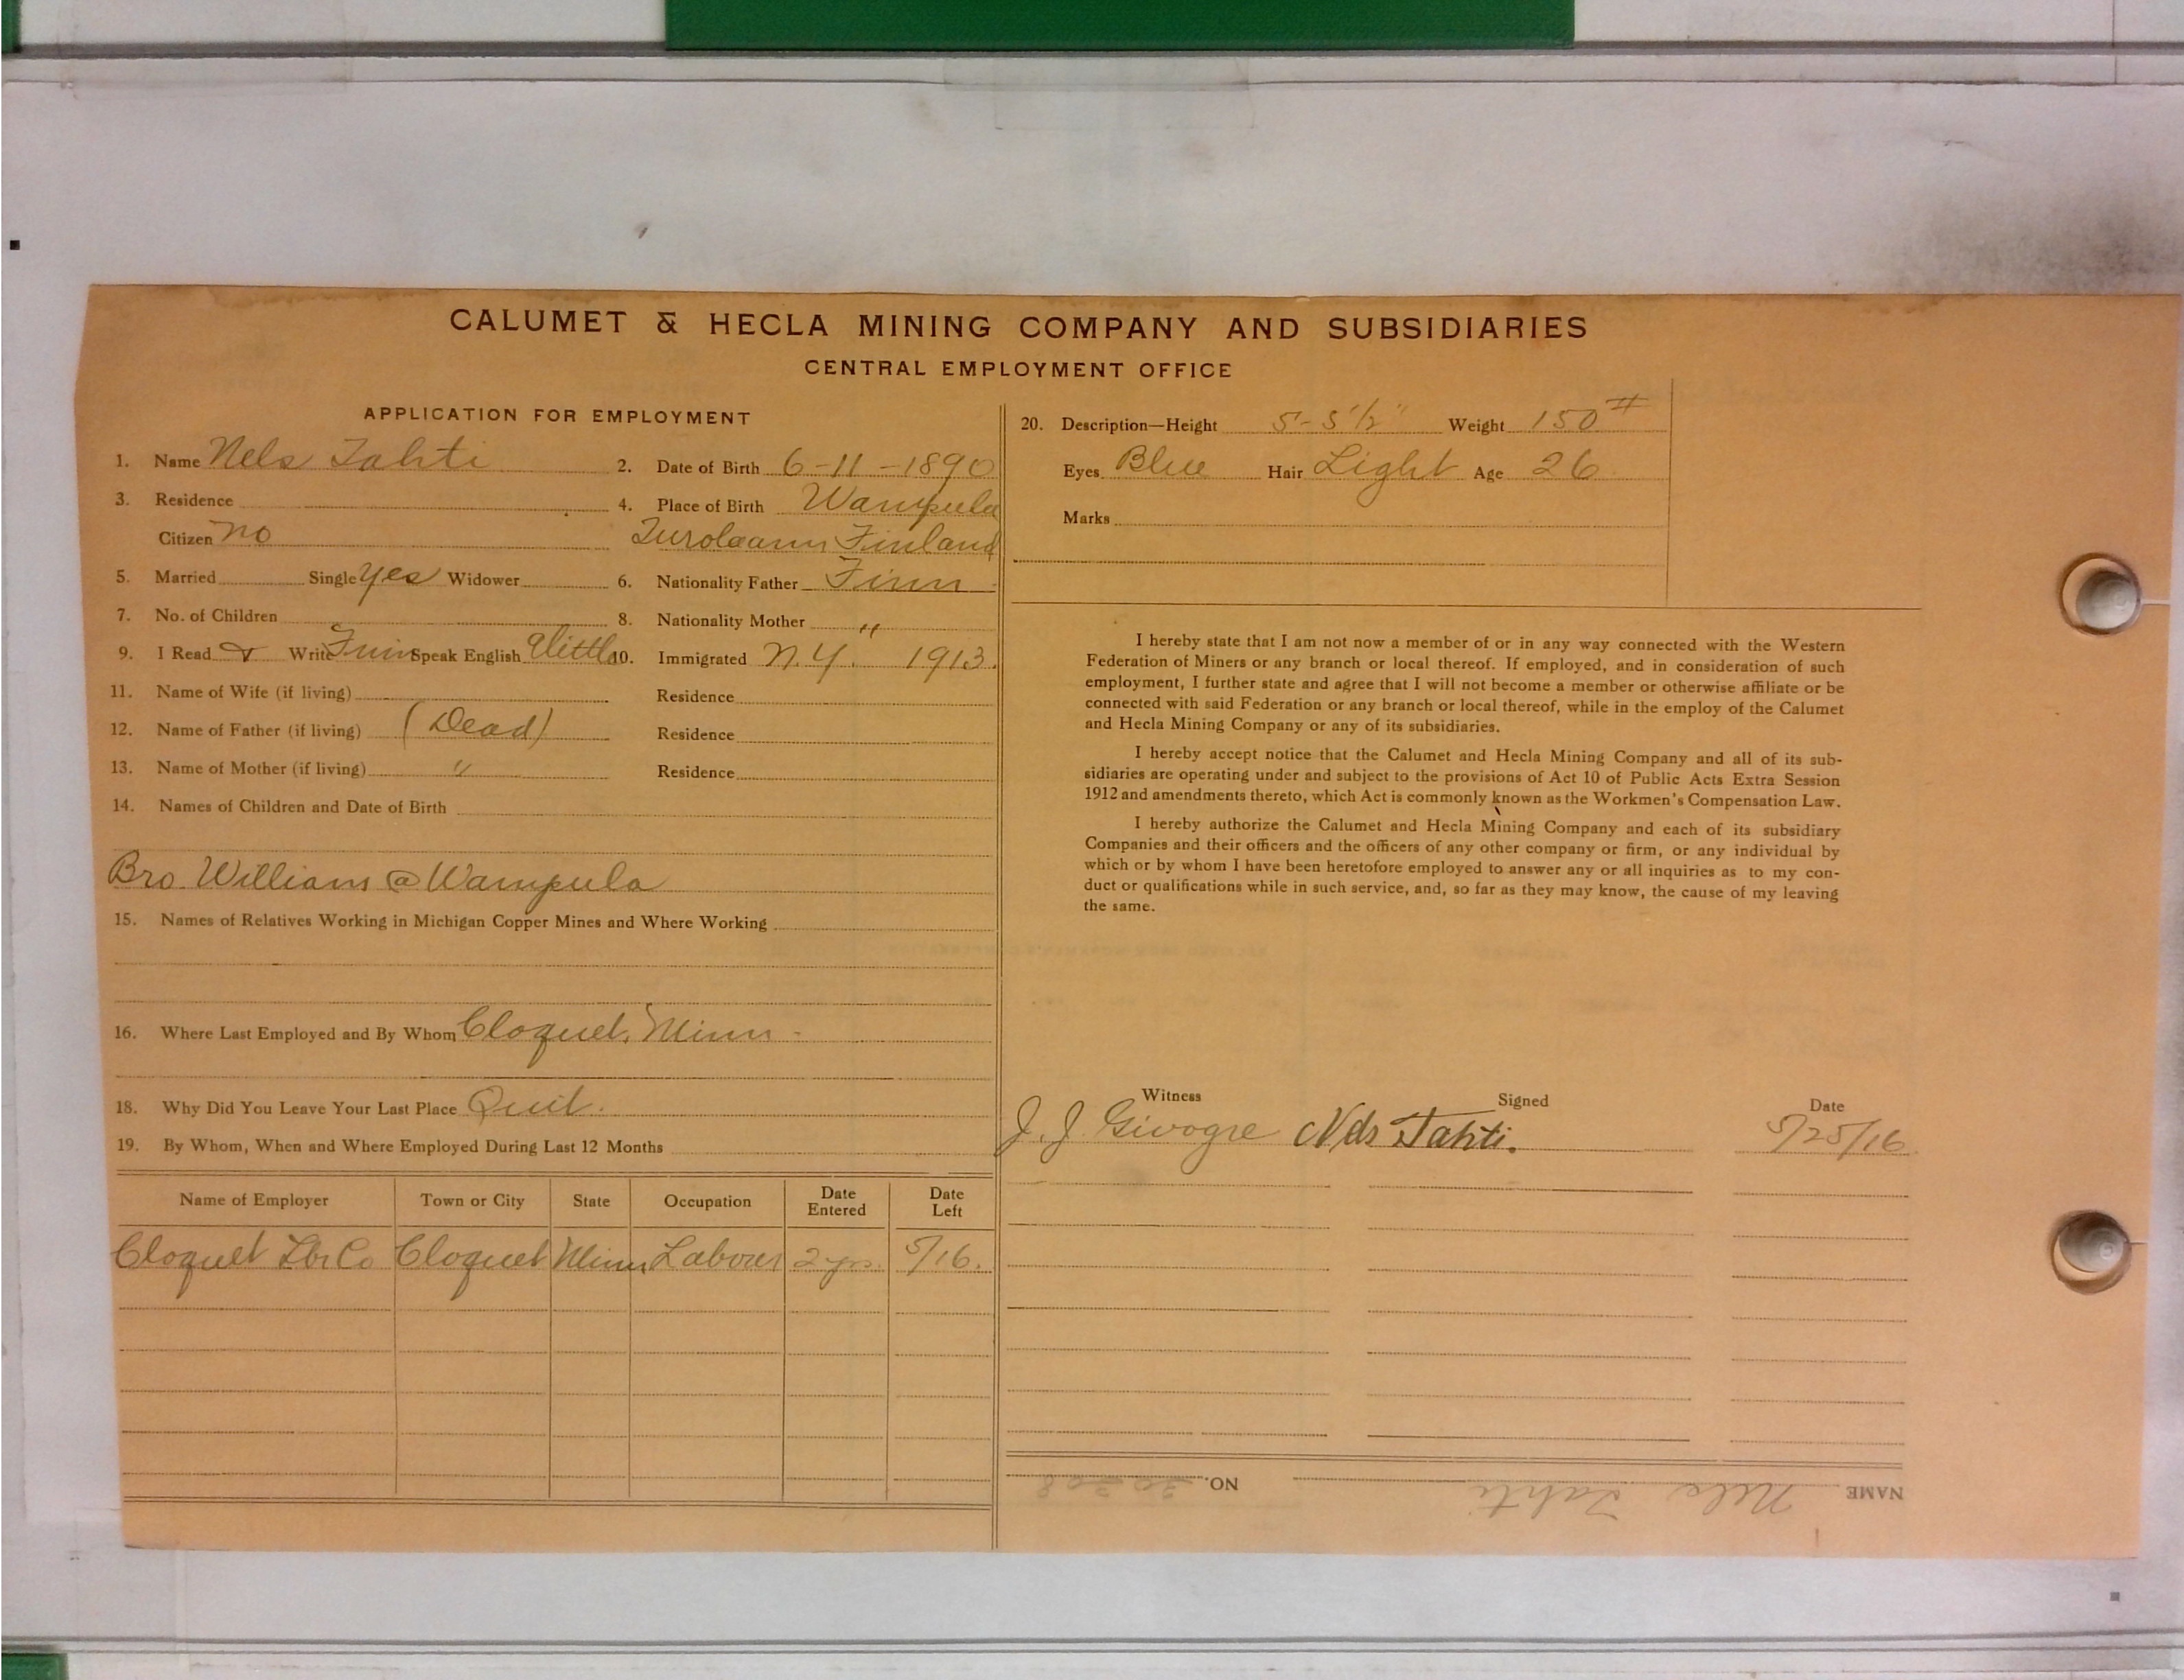 CALUMET & HECLA MINING COMPANY AND SUBSIDIARIES
CENTRAL EMPLOYMENT OFFICE
APPLICATION FOR EMPLOYMENT
1. Name Nels Tahti 2. Date of Birth 6-11-1890
3. Residence 4. Place of Birth Wampula
Citizen no Turolaann Finland
5. Married Single yes Widower 6. Nationality Father Finn
7. No. of Children 8. Nationality Mother "
9. I Read & Write Finn Speak English a little 10. Immigrated N.Y. 1913.
11. Name of Wife (if living) Residence
12. Name of Father (if living) (Dead) Residence
13. Name of Mother (if living) " Residence
14. Names of Children and Date of Birth
Bro. William @ Wampula
15. Names of Relatives Working in Michigan Copper Mines and Where Working
16. Where Last Employed and By Whom Cloquet, Minn -
18. Why Did You Leave Your Last Place Quit.
19. By Whom, When and Where Employed During Last 12 Months
Name of Employer Town or City State Occupation Date Entered Date Left
Cloquet Lbr Co Cloquet Minn Labour 2 yrs. 5/16.
20. Description—Height 5'-5 1/2" Weight 150#
Eyes Blue Hair Light Age 26
Marks
I hereby state that I am not now a member of or in any way connected with the Western
Federation of Miners or any branch or local thereof. If employed, and in consideration of such
employment, I further state and agree that I will not become a member or otherwise affiliate or be
connected with said Federation or any branch or local thereof, while in the employ of the Calumet
and Hecla Mining Company or any of its subsidiaries.
I hereby accept notice that the Calumet and Hecla Mining Company and all of its sub-
sidiaries are operating under and subject to the provisions of Act 10 of Public Acts Extra Session
1912 and amendments thereto, which Act is commonly known as the Workmen's Compensation Law.
I hereby authorize the Calumet and Hecla Mining Company and each of its subsidiary
Companies and their officers and the officers of any other company or firm, or any individual by
which or by whom I have been heretofore employed to answer any or all inquiries as to my con-
duct or qualifications while in such service, and, so far as they may know, the cause of my leaving
the same.
Witness Signed Date
J. J. Givogre Nels Tahti. 5/25/16
NAME Nels Tahti NO.